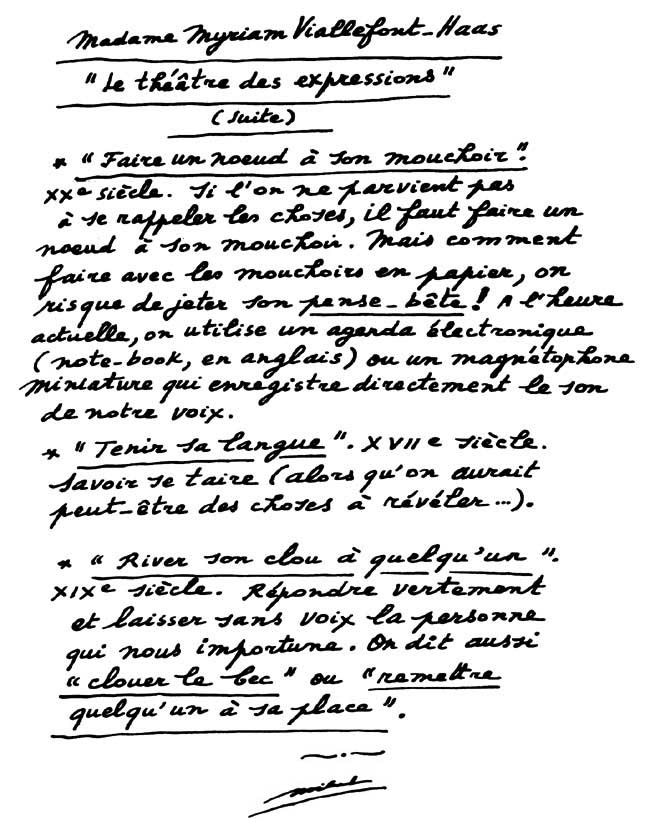 Madame Myriam Viallefont-Haas
"Le théâtre des expressions"
(suite)
* "Faire un noeud à son mouchoir".
XXe siècle. Si l'on ne parvient pas
à se rappeler les choses, il faut faire un
noeud à son mouchoir. Mais comment
faire avec les mouchoirs en papier, on
risque de jeter son pense-bête ! A l'heure
actuelle, on utilise un agenda électronique
(note-book, en anglais) ou un magnétophone
miniature qui enregistre directement le son
de notre voix.
* "Tenir sa langue". XVIIe siècle.
Savoir se taire (alors qu'on aurait
peut-être des choses à révéler...).
* "River son clou à quelqu'un".
XIXe siècle. Répondre vertement
et laisser sans voix la personne
qui nous importune. On dit aussi
"clouer le bec" ou "remettre
quelqu'un à sa place".